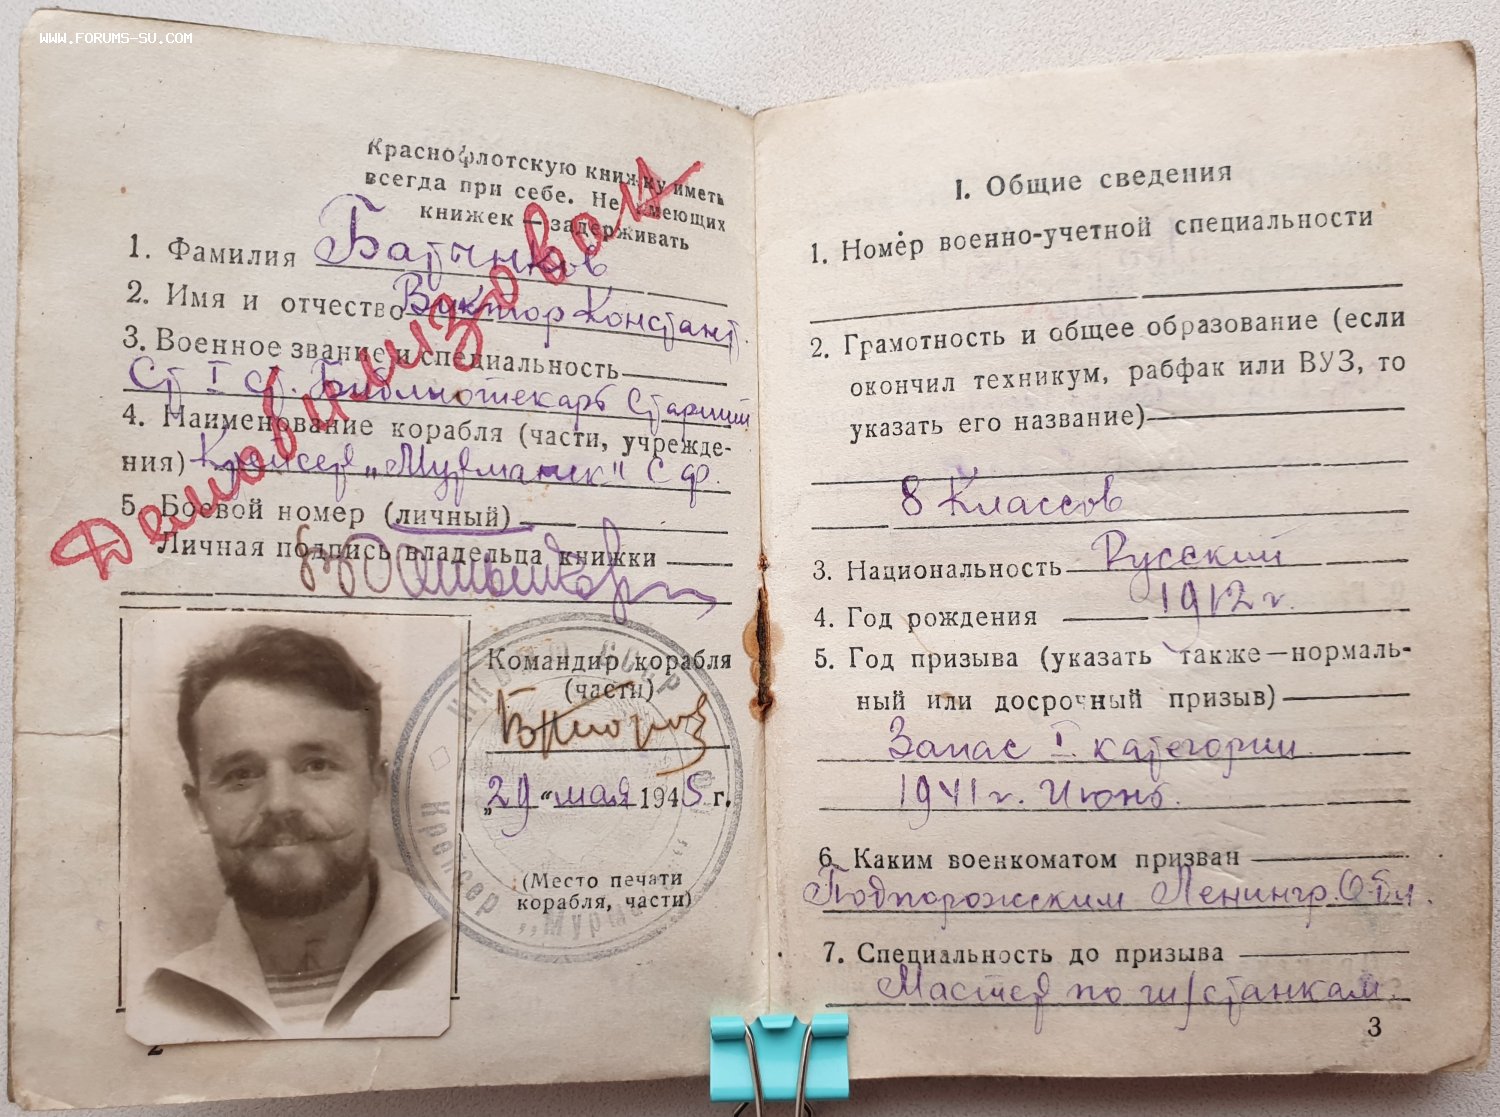 WWW.FORUMS-SU.COM
Краснофлотскую книжку иметь
всегда при себе. Не имеющих
книжек — задерживать
1. Фамилия Батьшков
2. Имя и отчество Виктор Констант.
3. Военное звание и специальность
Ст I ст. Библиотекарь Старший
4. Наименование корабля (части, учрежде-
ния) Крейсер „Мурманск" С.Ф.
5. Боевой номер (личный)
Личная подпись владельца книжки
Демобилизован
Командир корабля
(части)
„29" мая 1945 г.
(Место печати
корабля, части)
НКВМФ СССР
Крейсер „Мурманск"
2
I. Общие сведения
1. Номер военно-учетной специальности
2. Грамотность и общее образование (если
окончил техникум, рабфак или ВУЗ, то
указать его название)
8 Классов
3. Национальность Русский
4. Год рождения 1912 г.
5. Год призыва (указать также—нормаль-
ный или досрочный призыв)
Запас I категории
1941 г. Июнь.
6. Каким военкоматом призван
Подпорожским Ленингр. Обл.
7. Специальность до призыва
Мастер по станкам.
3